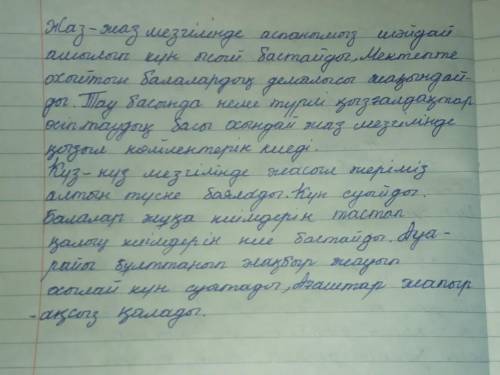 Жаз-жаз мезгілінде аспанымыз шәйдай
ашылып күн ысый бастайды, Мектепте
оқыйтын балалардың демалысы жақындай-
ды. Тау басында неше түрлі қызғалдақтар
өсіп, таудың басы осындай жаз мезгілінде
қызыл көйлектерін киеді.
Күз-күз мезгілінде жасыл жеріміз
алтын түске баялады. Күн суыйды.
Балалар жұқа киімдерін тастап
қалың киімдерін кие бастайды. Ауа-
райы бұлттанып жаңбыр жауып
осылай күн суытады, Ағаштар жапыр-
ақсыз қалады.